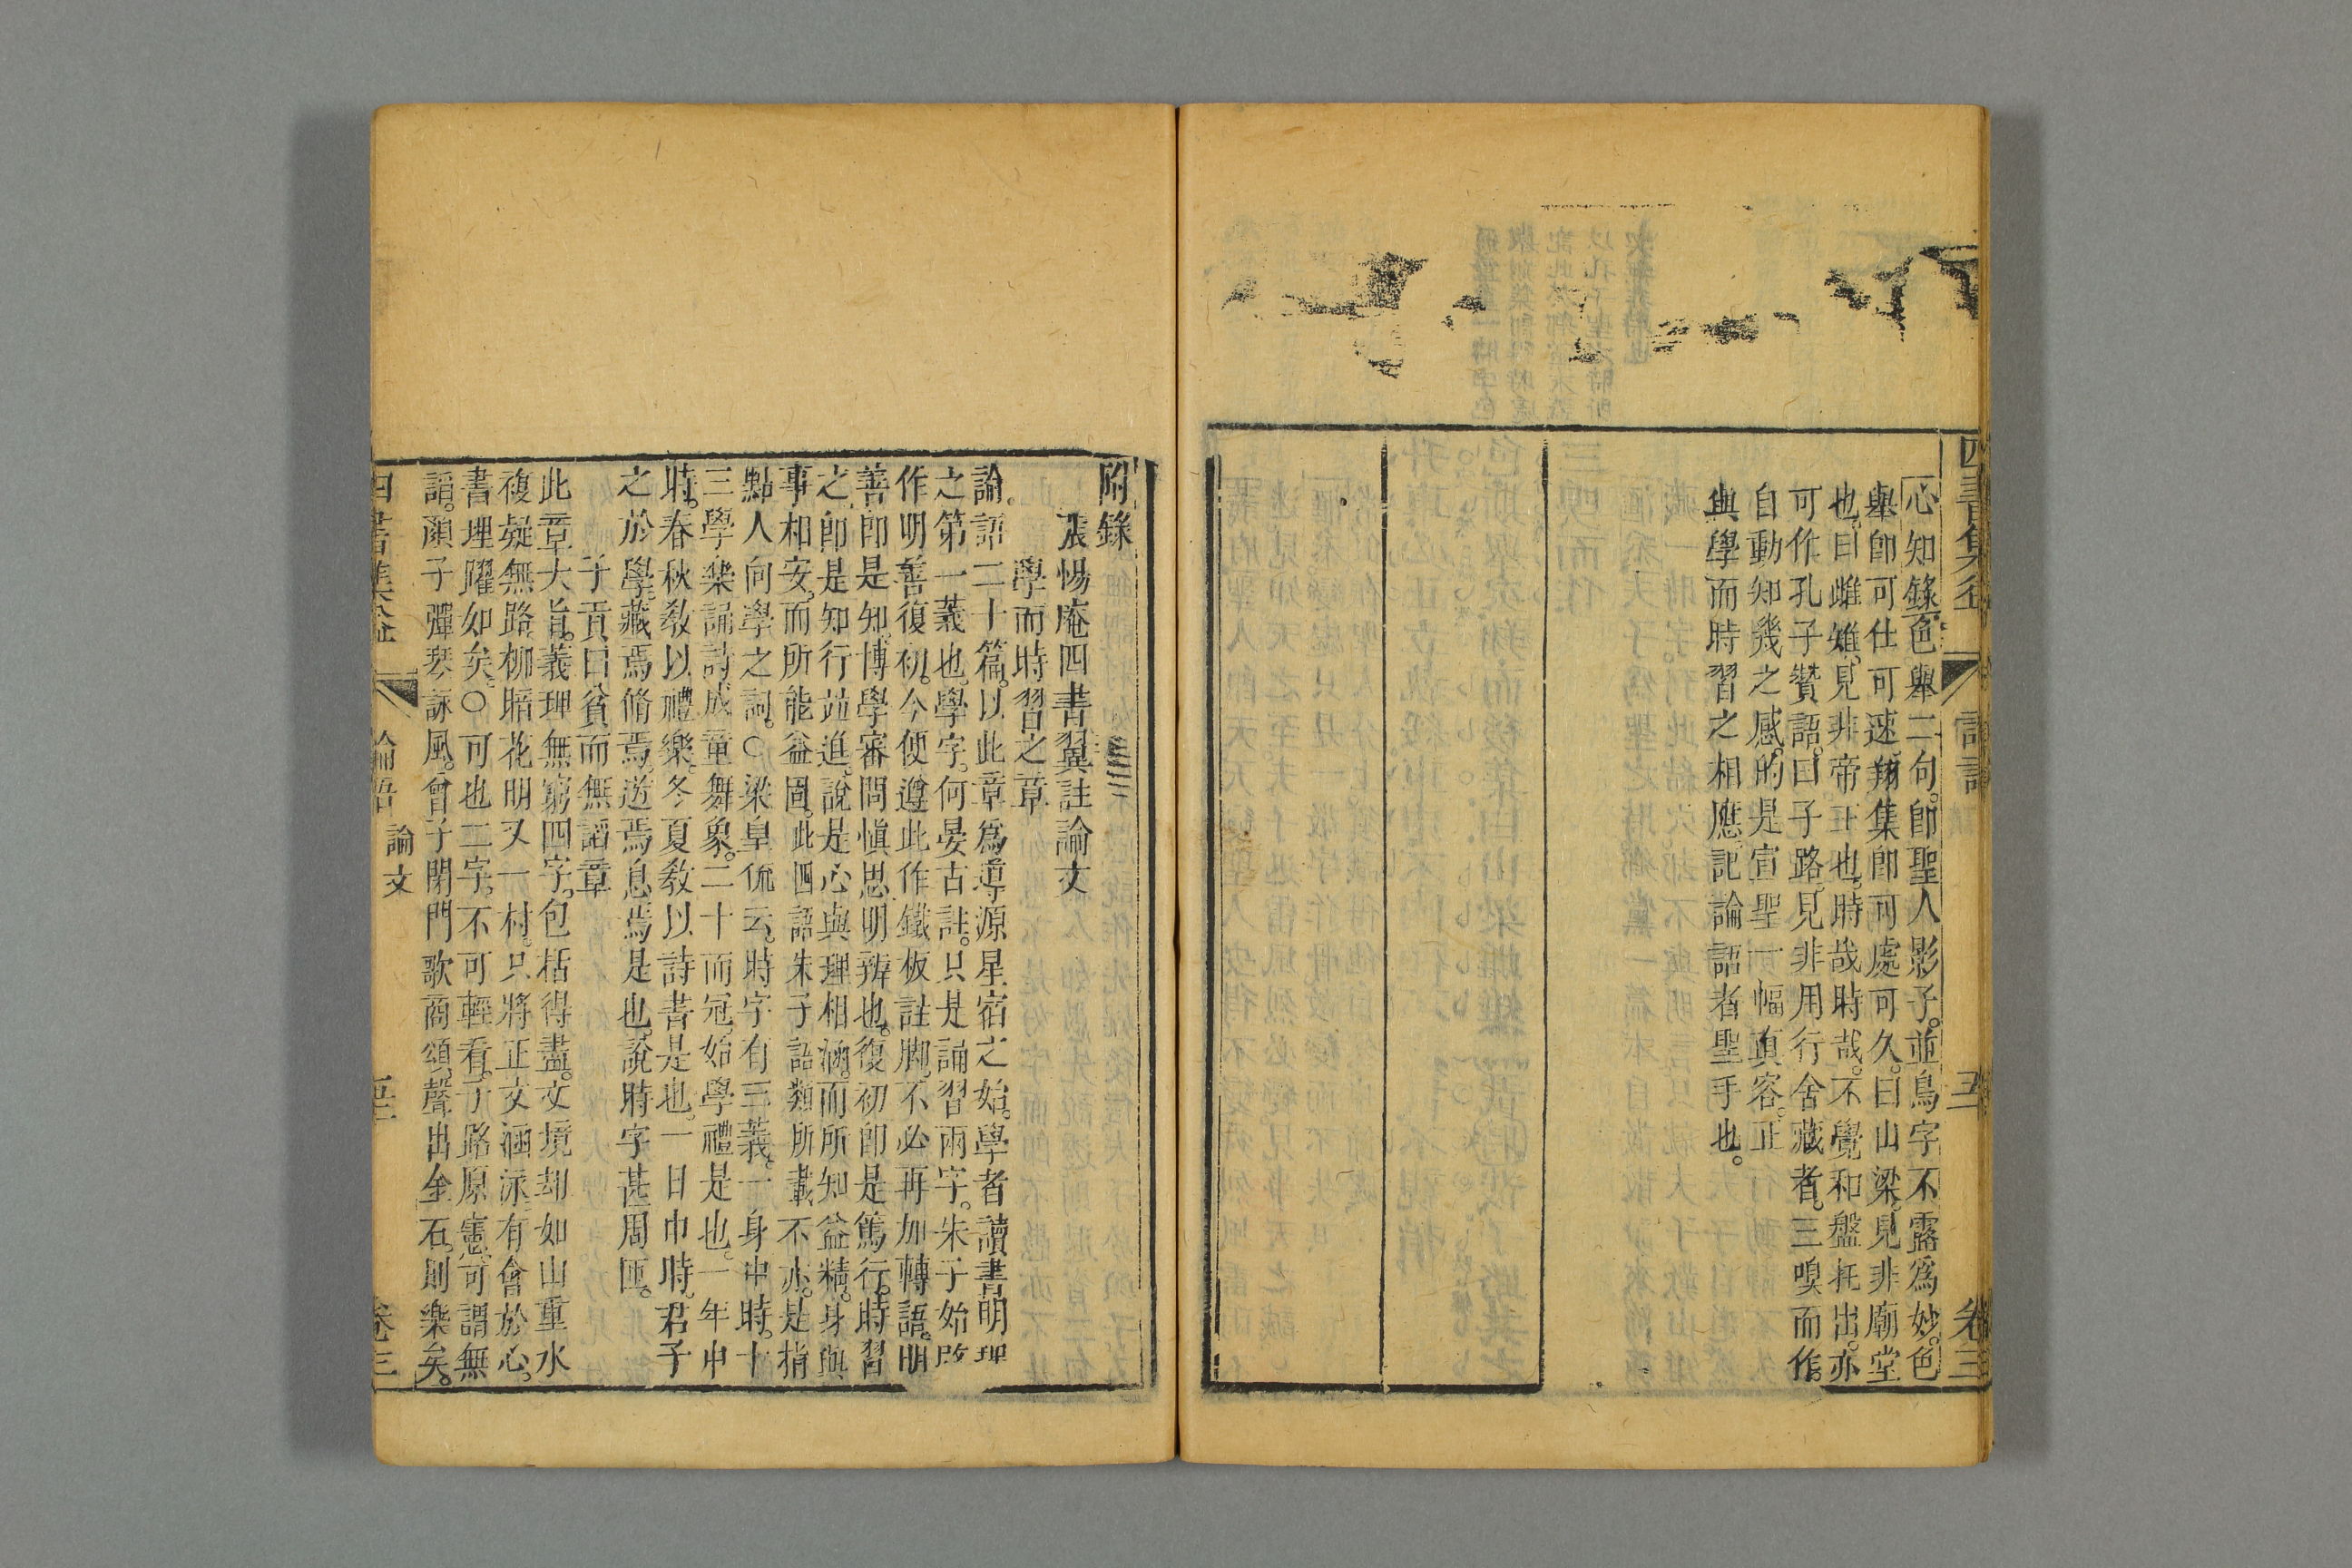 心知錄色舉二句。卽聖人影子。並鳥字不露爲妙。色
舉卽可仕可速。翔集卽可處可久。曰山梁。見非廟堂
也。曰雌雉。見非帝王也。時哉時哉。不覺和盤托出。亦
可作孔子贊語。曰子路。見非用行舍藏者。三嗅而作。
自動知幾之感。的是宣聖一幅眞容。正
與學而時習之相應。記論語者聖手也。
卷三
附錄
張惕庵四書翼註論文
學而時習之章
論語二十篇。以此章爲導源星宿之始。學者讀書明理
之第一義也。學字。何晏古註。只是誦習兩字。朱子始改
作明善復初。今便遵此作鐵板註脚。不必再加轉語。明
善卽是知。博學審問愼思明辨也。復初卽是篤行。時習
之。卽是知行並進。說是心與理相涵。而所知益精。身與
事相安。而所能益固。此四語朱子語類所載。不亦。是指
點人向學之詞。○梁皇侃云。時字有三義。一身中時。十
三學樂誦詩。成童舞象。二十而冠。始學禮是也。一年中
時。春秋敎以禮樂。冬夏敎以詩書是也。一日中時。君子
之於學。藏焉脩焉。遊焉息焉是也。說時字甚周匝。
子貢曰貧而無諂章
此章大旨。義理無窮四字。包括得盡。文境却如山重水
複疑無路。柳暗花明又一村。只將正文涵泳。有會於心。
書理躍如矣。○可也二字。不可輕看。子路原憲。可謂無
諂。顏子彈琴詠風。曾子閉門歌商頌。聲出金石。則樂矣。
四書集益
論語
論文
卷三